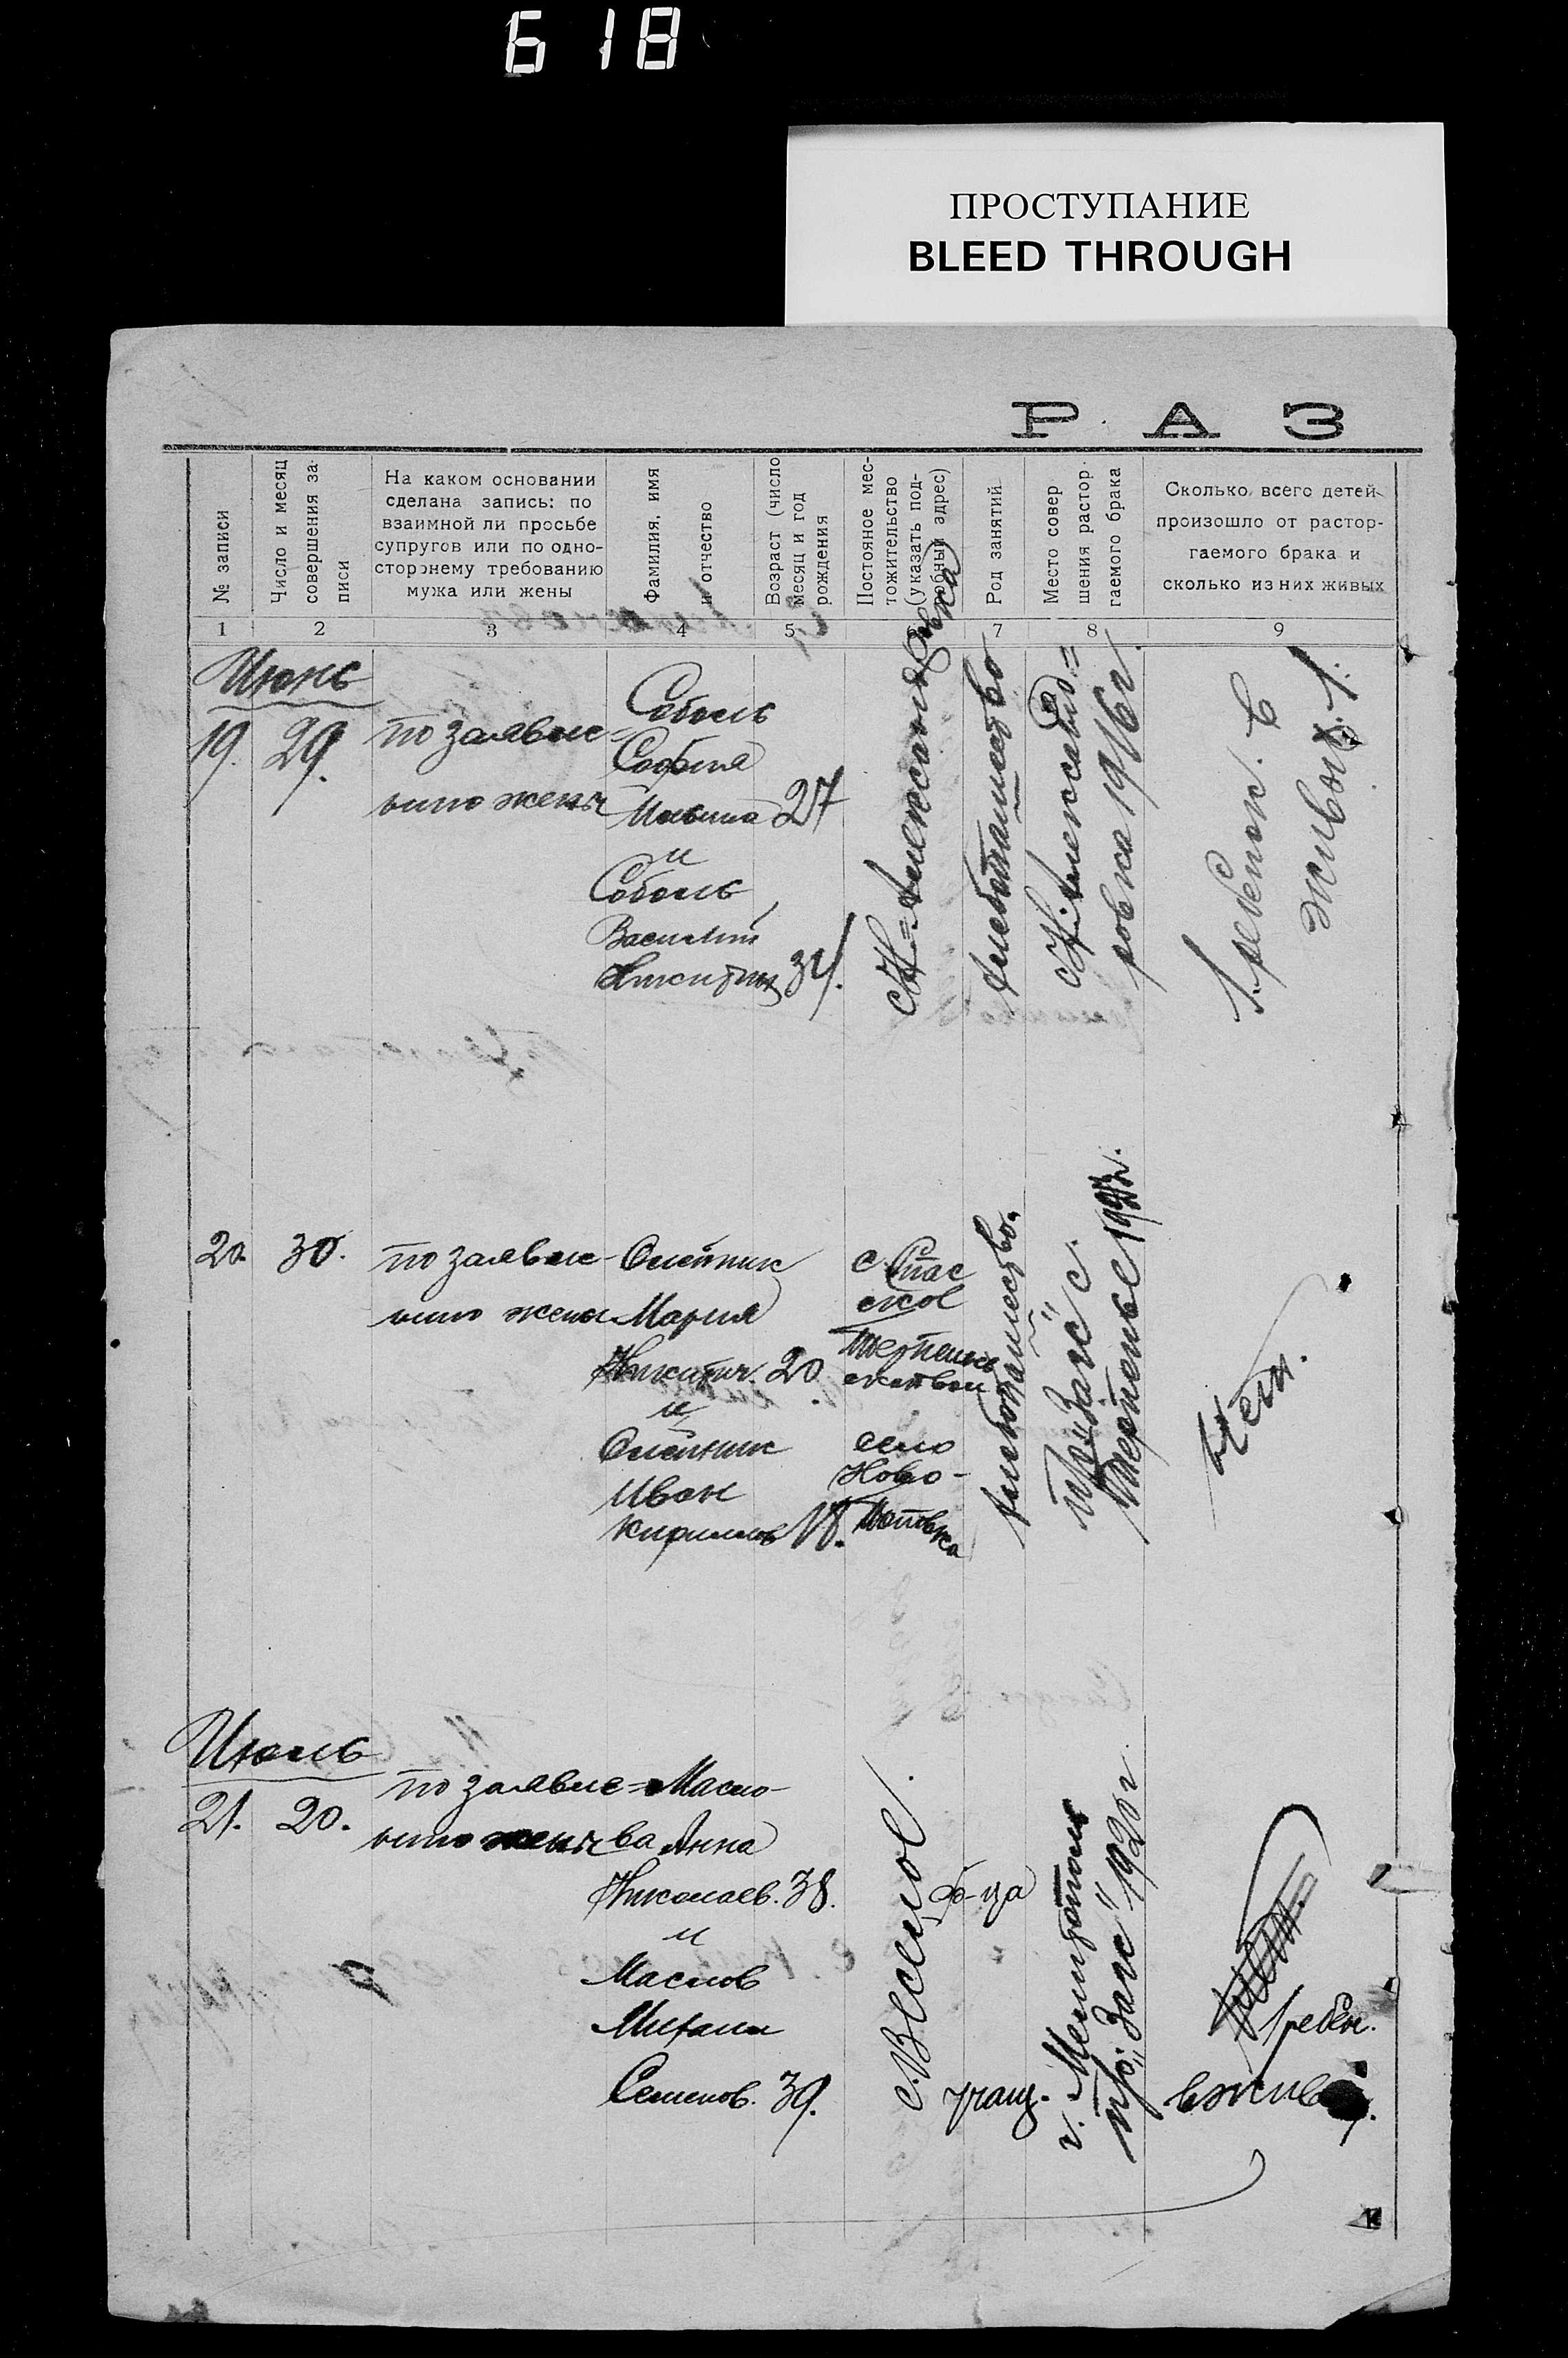 618
ПРОСТУПАНИЕ
BLEED THROUGH
РАЗ
№ записи
Число и месяц
совершения за
писи
На каком основании
сделана запись: по
взаимной ли просьбе
супругов или по одно-
стороннему требованию
мужа или жены
Фамилия, имя
и отчество
Возраст (число
месяц и год
рождения
Постояное мес-
тожительство
(указать под-
робный адрес)
Род занятий
Место совер
шения растор
гаемого брака
Сколько всего детей
произошло от растор-
гаемого брака и
сколько из них живых
1 2 3 4 5 7 8 9
Июнь
19. 29.
по заявле-
нию жены
Соболь
София
27
и
Соболь
Василий
Никитич 34.
с. Н=Александровка
хлебопашество
с. Н. Александ=
ровка 1916 г.
1. ребенок. В
живых. 1.
20. 30.
по заявле-
нию жены
Олейник
Мария
Никитич. 20.
и
Олейник
Иван
Кириллов 18.
с. Спас
ское
село
Ново-
хлебопашество.
при "Загс" с.
Терпенье
Июль
21. 20.
по заявле=
нию жены
Масло-
ва Анна
Николаев. 38.
и
Маслов
Михаил
Семенов. 39.
с. Веселое.
учащ.
г. Мелитополь
при "Загс" 1920 г.
1 ребен.
в жив